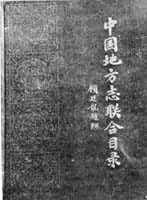 中国地方志联合目录
顾廷龙题